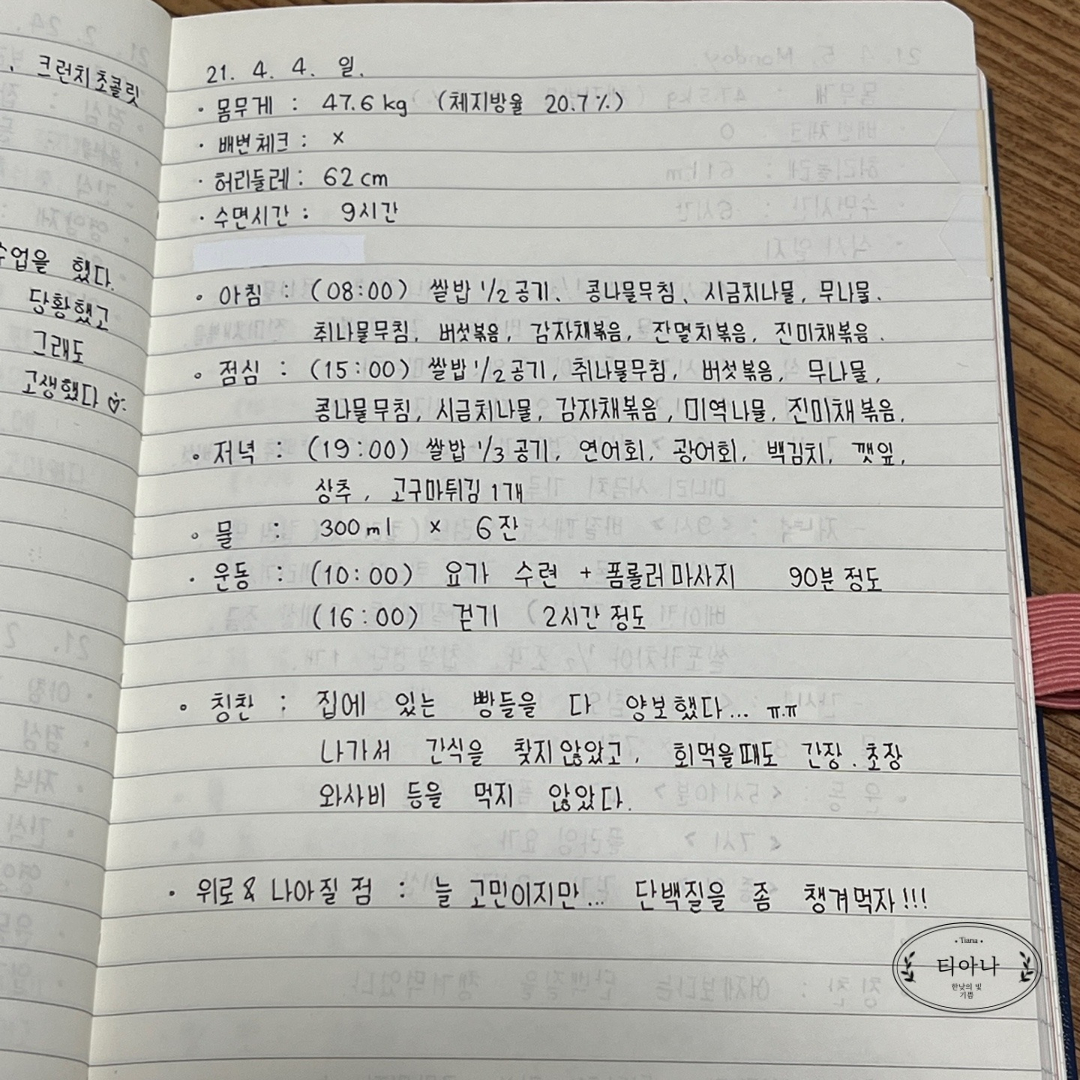 크런치초콜릿
수업을 했다.
당황했고
그래도
고생했다
21. 4. 4. 일.
· 몸무게 : 47.6 kg (체지방율 20.7%)
· 배변체크 : x
· 허리둘레 : 62 cm
· 수면시간 : 9시간
· 아침 : (08:00) 쌀밥 1/2공기. 콩나물무침, 시금치나물, 무나물.
취나물무침, 버섯볶음, 감자채볶음, 잔멸치볶음, 진미채볶음.
· 점심 : (15:00) 쌀밥 1/2공기, 취나물무침, 버섯볶음, 무나물,
콩나물무침, 시금치나물, 감자채볶음, 미역나물, 진미채볶음.
· 저녁 : (19:00) 쌀밥 1/3공기, 연어회, 광어회, 백김치, 깻잎,
상추, 고구마튀김 1개
· 물 : 300ml x 6잔
· 운동 : (10:00) 요가 수련 + 폼롤러마사지 90분 정도
(16:00) 걷기 (2시간 정도
· 칭찬 : 집에 있는 빵들을 다 양보했다... ㅠ.ㅠ
나가서 간식을 찾지않았고, 회먹을때도 간장.초장
와사비 등을 먹지 않았다.
· 위로 & 나아질 점 : 늘 고민이지만... 단백질을 좀 챙겨먹자!!!
• Tiana •
티아나
한낮의 빛
기쁨